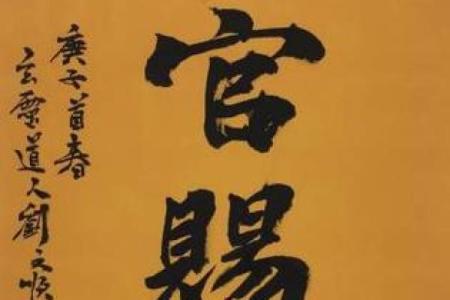 官賜
庚子首春
玄靈道人劉文順